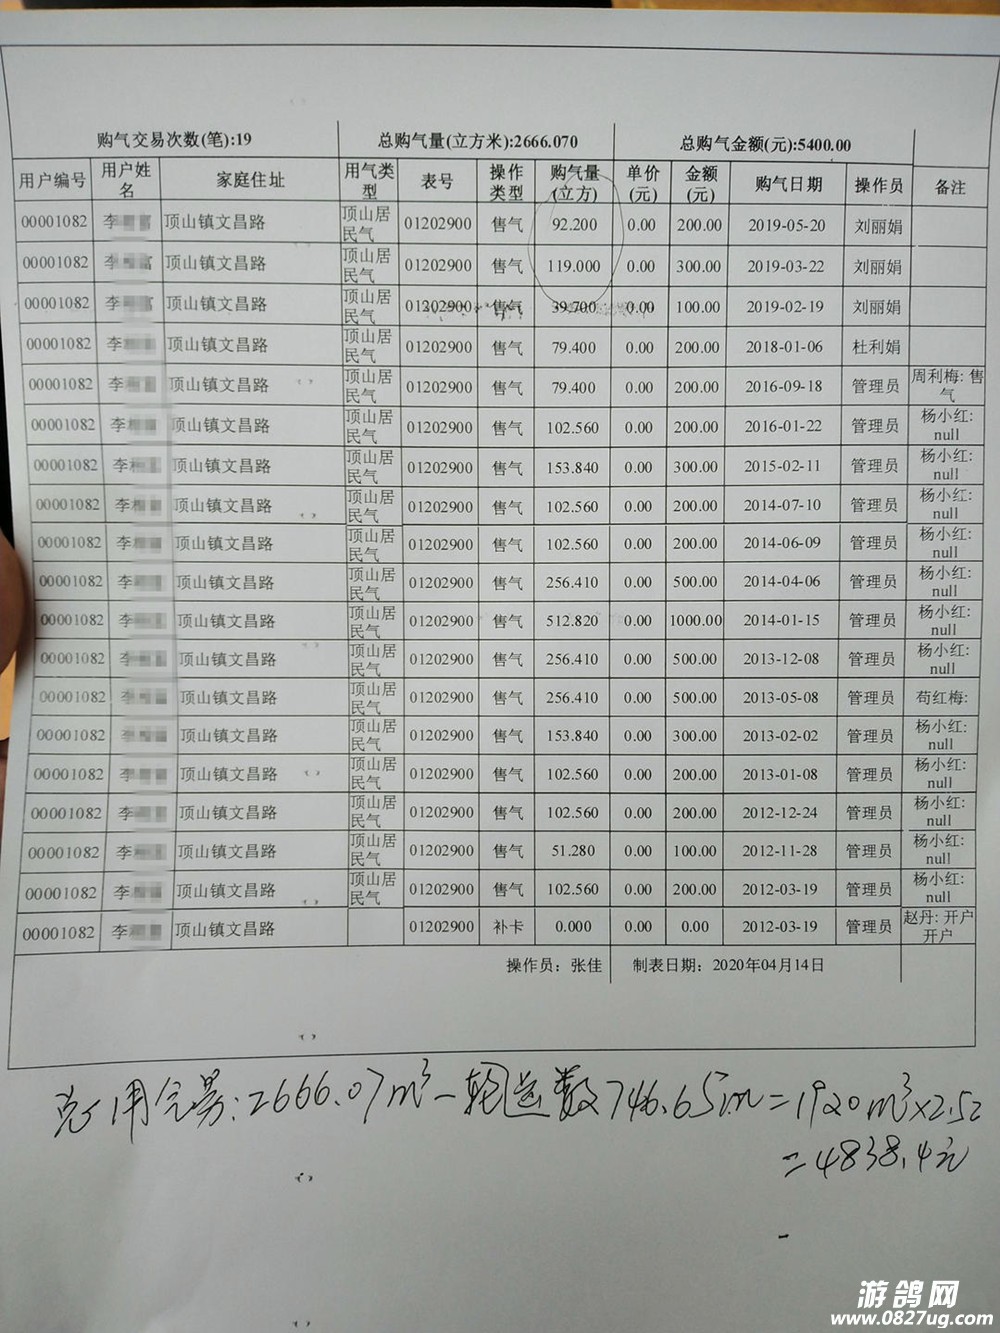 购气交易次数(笔):19 总购气量(立方米):2666.070 总购气金额(元):5400.00
用户编号 用户姓名 家庭住址 用气类型 表号 操作类型 购气量(立方) 单价(元) 金额(元) 购气日期 操作员 备注
00001082 李 富 顶山镇文昌路 顶山居民气 01202900 售气 92.200 0.00 200.00 2019-05-20 刘丽娟
00001082 李 富 顶山镇文昌路 顶山居民气 01202900 售气 119.000 0.00 300.00 2019-03-22 刘丽娟
00001082 李 富 顶山镇文昌路 顶山居民气 01202900 售气 39.700 0.00 100.00 2019-02-19 刘丽娟
00001082 李 顶山镇文昌路 顶山居民气 01202900 售气 79.400 0.00 200.00 2018-01-06 杜利娟
00001082 李 顶山镇文昌路 顶山居民气 01202900 售气 79.400 0.00 200.00 2016-09-18 管理员 周利梅: 售气
00001082 李 顶山镇文昌路 顶山居民气 01202900 售气 102.560 0.00 200.00 2016-01-22 管理员 杨小红: null
00001082 李 顶山镇文昌路 顶山居民气 01202900 售气 153.840 0.00 300.00 2015-02-11 管理员 杨小红: null
00001082 李 顶山镇文昌路 顶山居民气 01202900 售气 102.560 0.00 200.00 2014-07-10 管理员 杨小红: null
00001082 李 顶山镇文昌路 顶山居民气 01202900 售气 102.560 0.00 200.00 2014-06-09 管理员 杨小红: null
00001082 李 顶山镇文昌路 顶山居民气 01202900 售气 256.410 0.00 500.00 2014-04-06 管理员 杨小红: null
00001082 李 顶山镇文昌路 顶山居民气 01202900 售气 512.820 0.00 1000.00 2014-01-15 管理员 杨小红: null
00001082 李 顶山镇文昌路 顶山居民气 01202900 售气 256.410 0.00 500.00 2013-12-08 管理员 杨小红: null
00001082 李 顶山镇文昌路 顶山居民气 01202900 售气 256.410 0.00 500.00 2013-05-08 管理员 苟红梅:
00001082 李 顶山镇文昌路 顶山居民气 01202900 售气 153.840 0.00 300.00 2013-02-02 管理员 杨小红: null
00001082 李 顶山镇文昌路 顶山居民气 01202900 售气 102.560 0.00 200.00 2013-01-08 管理员 杨小红: null
00001082 李 顶山镇文昌路 顶山居民气 01202900 售气 102.560 0.00 200.00 2012-12-24 管理员 杨小红: null
00001082 李 顶山镇文昌路 顶山居民气 01202900 售气 51.280 0.00 100.00 2012-11-28 管理员 杨小红: null
00001082 李 顶山镇文昌路 顶山居民气 01202900 售气 102.560 0.00 200.00 2012-03-19 管理员 杨小红: null
00001082 李 顶山镇文昌路 01202900 补卡 0.000 0.00 0.00 2012-03-19 管理员 赵丹: 开户开户
操作员：张佳 制表日期：2020年04月14日
总用气量:2666.07m³-数746.65m=1920m³×2.52
=4838.4元
游鸽网
www.0827ug.com